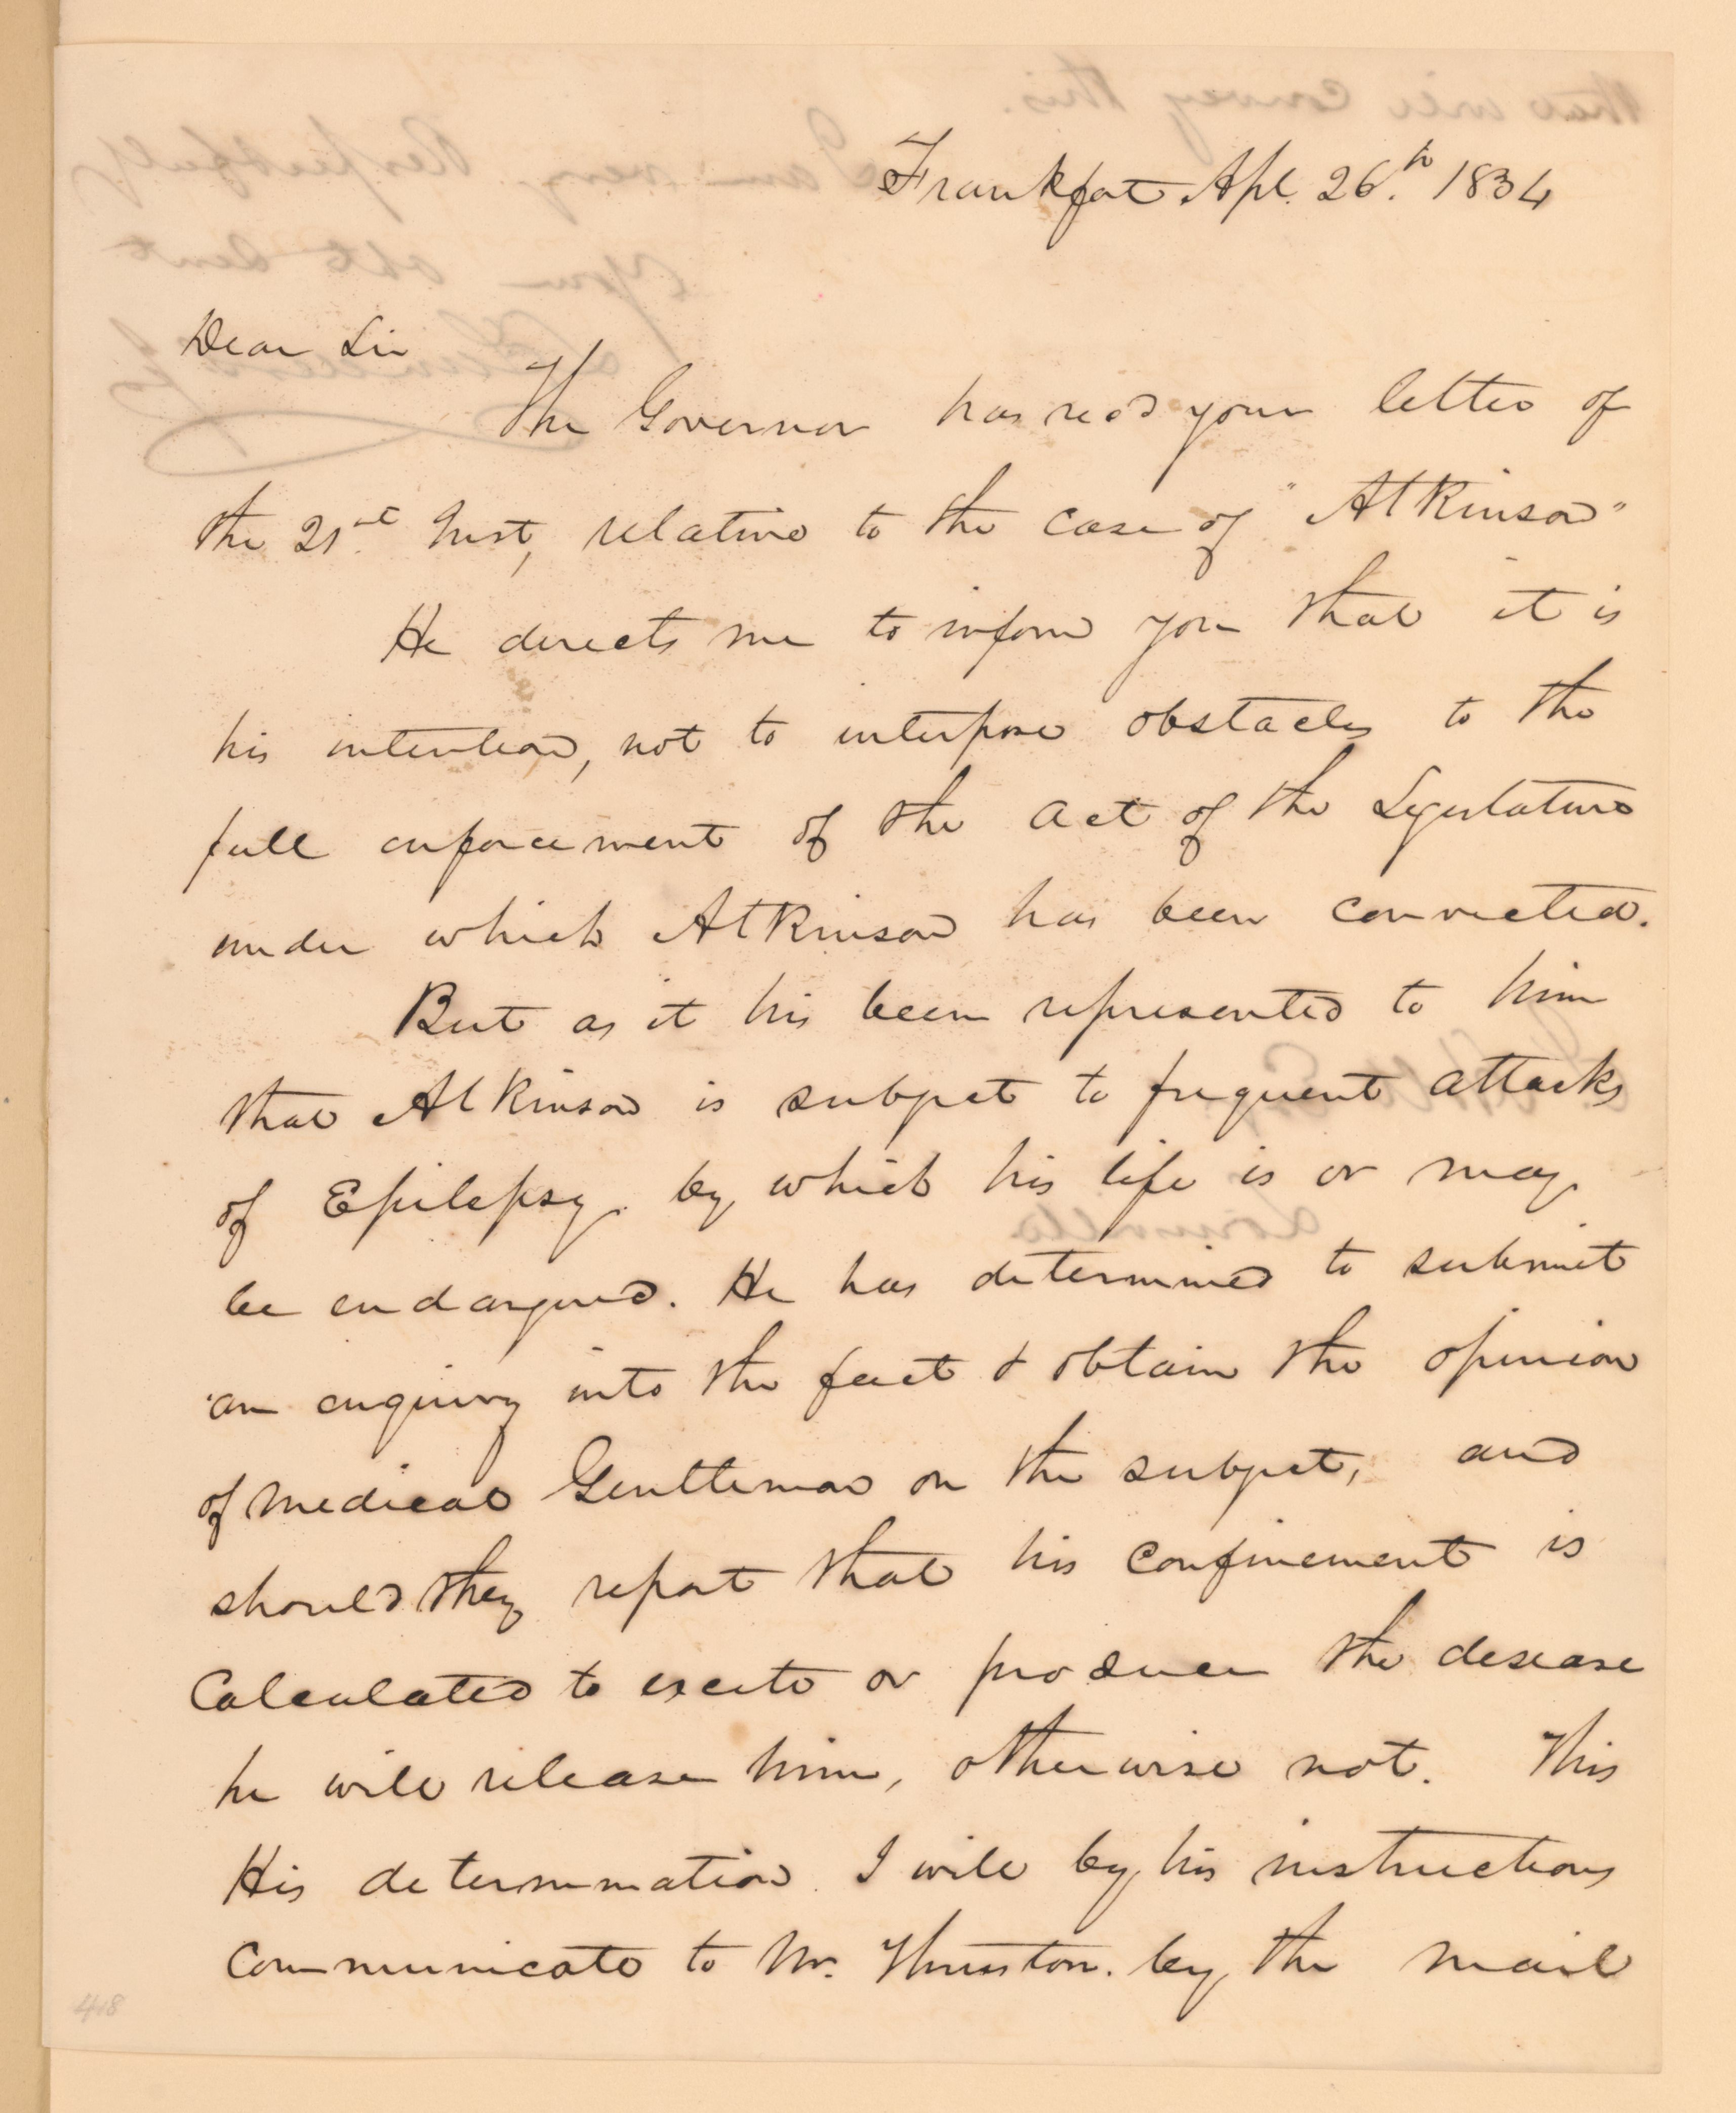 Frankfort Apl. 26.th 1834
Dear Sir
The Governor has recd your letter of
the 21.st Inst, relative to the case of "Atkinson"
He directs me to inform you that it is
his intention, not to interpose obstacles to the
full enforcement of the act of the Legislature
under which Atkinson has been convicted.
But as it his been represented to him
that Atkinson is subject to frequent attacks
of Epilepsy. by which his life is or may
be endangered. He has determined to submit
an enquiry into the fact & obtain the opinion
of medical Gentleman on the subject, and
should they report that his confinement is
Calculated to excite or produce the disease
he will release him, otherwise not. This
His determination. I will by his instructions
communicate to Mr. Thruston. by the mail
418